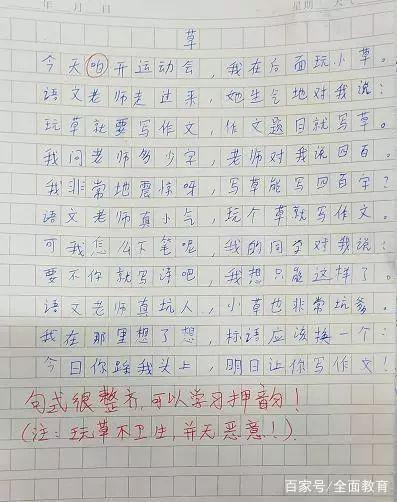 月 日 星期 天气
草
今天咱开运动会，我在后面玩小草。
语文老师走过来，她生气地对我说：
玩草就要写作文，作文题目就写草。
我问老师多少字，老师对我说四百。
我非常地震惊呀，写草能写四百字？
语文老师真小气，玩个草就写作文。
可我怎么下笔呢，我的同学对我说：
要不你就写诗吧，我想只能这样了。
语文老师真坑人，小草也非常坑爹。
我在那里想了想，标语应该换一个：
今日你踩我头上，明日让你写作文！
句式很整齐，可以学习押韵！
（注：玩草不卫生，并无恶意！）
百家号/全面教育